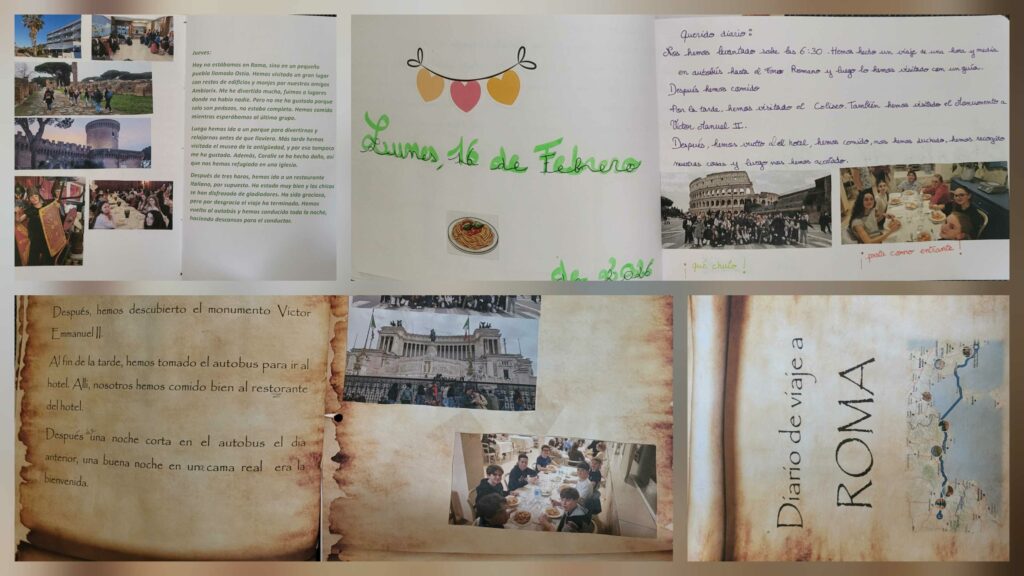 Jueves:
Hoy no estábamos en Roma, sino en un pequeño
pueblo llamado Ostia. Hemos visitado un gran lugar
con restos de edificios y monjes por nuestros amigos
Ambiorix. Me he divertido mucho, fuimos a lugares
donde no había nadie. Pero no me ha gustado porque
solo son pedazos, no estaba completo. Hemos comido
mientras esperábamos al último grupo.
Luego hemos ido a un parque para divertirnos y
relajarnos antes de que lloviera. Más tarde hemos
visitado el museo de la antigüedad, y por eso tampoco
me ha gustado. Además, Coralie se ha hecho daño, así
que nos hemos refugiado en una iglesia.
Después de tres horas, hemos ido a un restaurante
italiano, por supuesto. Ha estado muy bien y las chicas
se han disfrazado de gladiadores. Ha sido gracioso,
pero por desgracia el viaje ha terminado. Hemos
vuelto al autobús y hemos conducido toda la noche,
haciendo descansos para el conductor.
Lunes, 16 de Febrero
de 2026
Querido diario:
Nos hemos levantado sobre las 6:30. Hemos hecho un viaje de una hora y media
en autobús hasta el Foro Romano y luego lo hemos visitado con un guía.
Después hemos comido
Por la tarde, hemos visitado el Coliseo. También hemos visitado el Monumento a
Víctor Manuel II.
Después, hemos vuelto al hotel, hemos comido, nos hemos duchado, hemos recogido
nuestras cosas y luego nos hemos acostado.
¡qué chulo!
¡pasta como entrante!
Después, hemos descubierto el monumento Victor
Emmanuel II.
Al fin de la tarde, hemos tomado el autobus para ir al
hotel. Allí, nosotros hemos comido bien al restorante
del hotel.
Después una noche corta en el autobus el dia
anterior, una buena noche en una cama real era la
bienvenida.
Diario de viaje a
ROMA